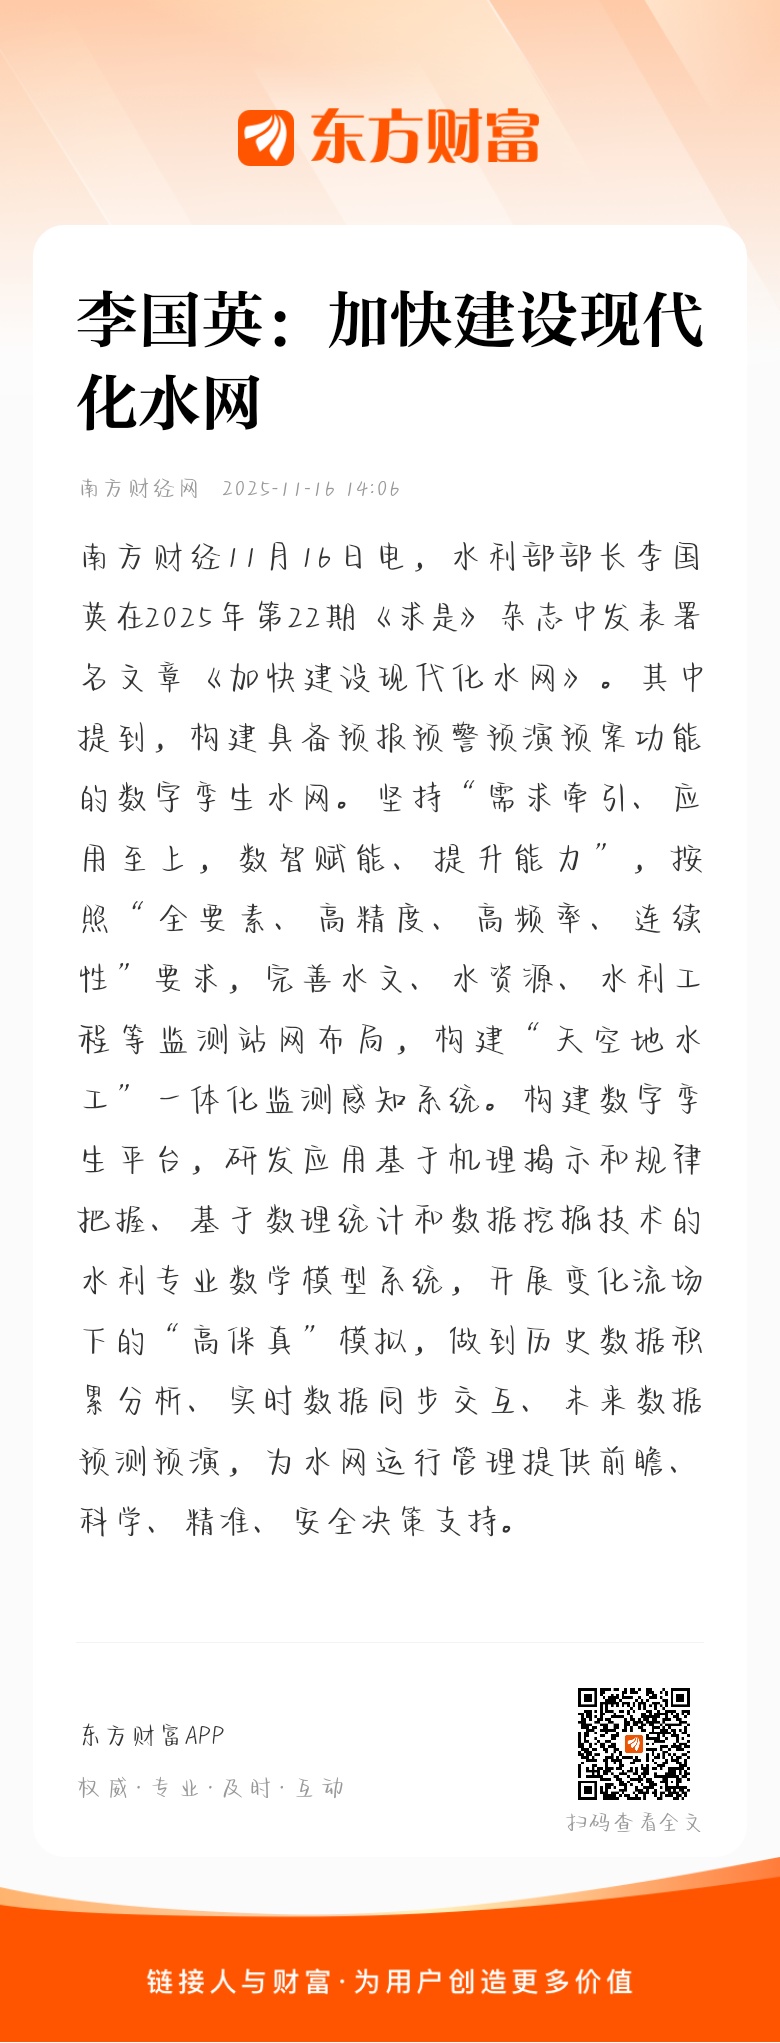 东方财富
李国英：加快建设现代
化水网
南方财经网 2025-11-16 14:06
南方财经11月16日电，水利部部长李国
英在2025年第22期《求是》杂志中发表署
名文章《加快建设现代化水网》。其中
提到，构建具备预报预警预演预案功能
的数字孪生水网。坚持“需求牵引、应
用至上，数智赋能、提升能力”，按
照“全要素、高精度、高频率、连续
性”要求，完善水文、水资源、水利工
程等监测站网布局，构建“天空地水
工”一体化监测感知系统。构建数字孪
生平台，研发应用基于机理揭示和规律
把握、基于数理统计和数据挖掘技术的
水利专业数学模型系统，开展变化流场
下的“高保真”模拟，做到历史数据积
累分析、实时数据同步交互、未来数据
预测预演，为水网运行管理提供前瞻、
科学、精准、安全决策支持。
东方财富APP
权威·专业·及时·互动
扫码查看全文
链接人与财富·为用户创造更多价值